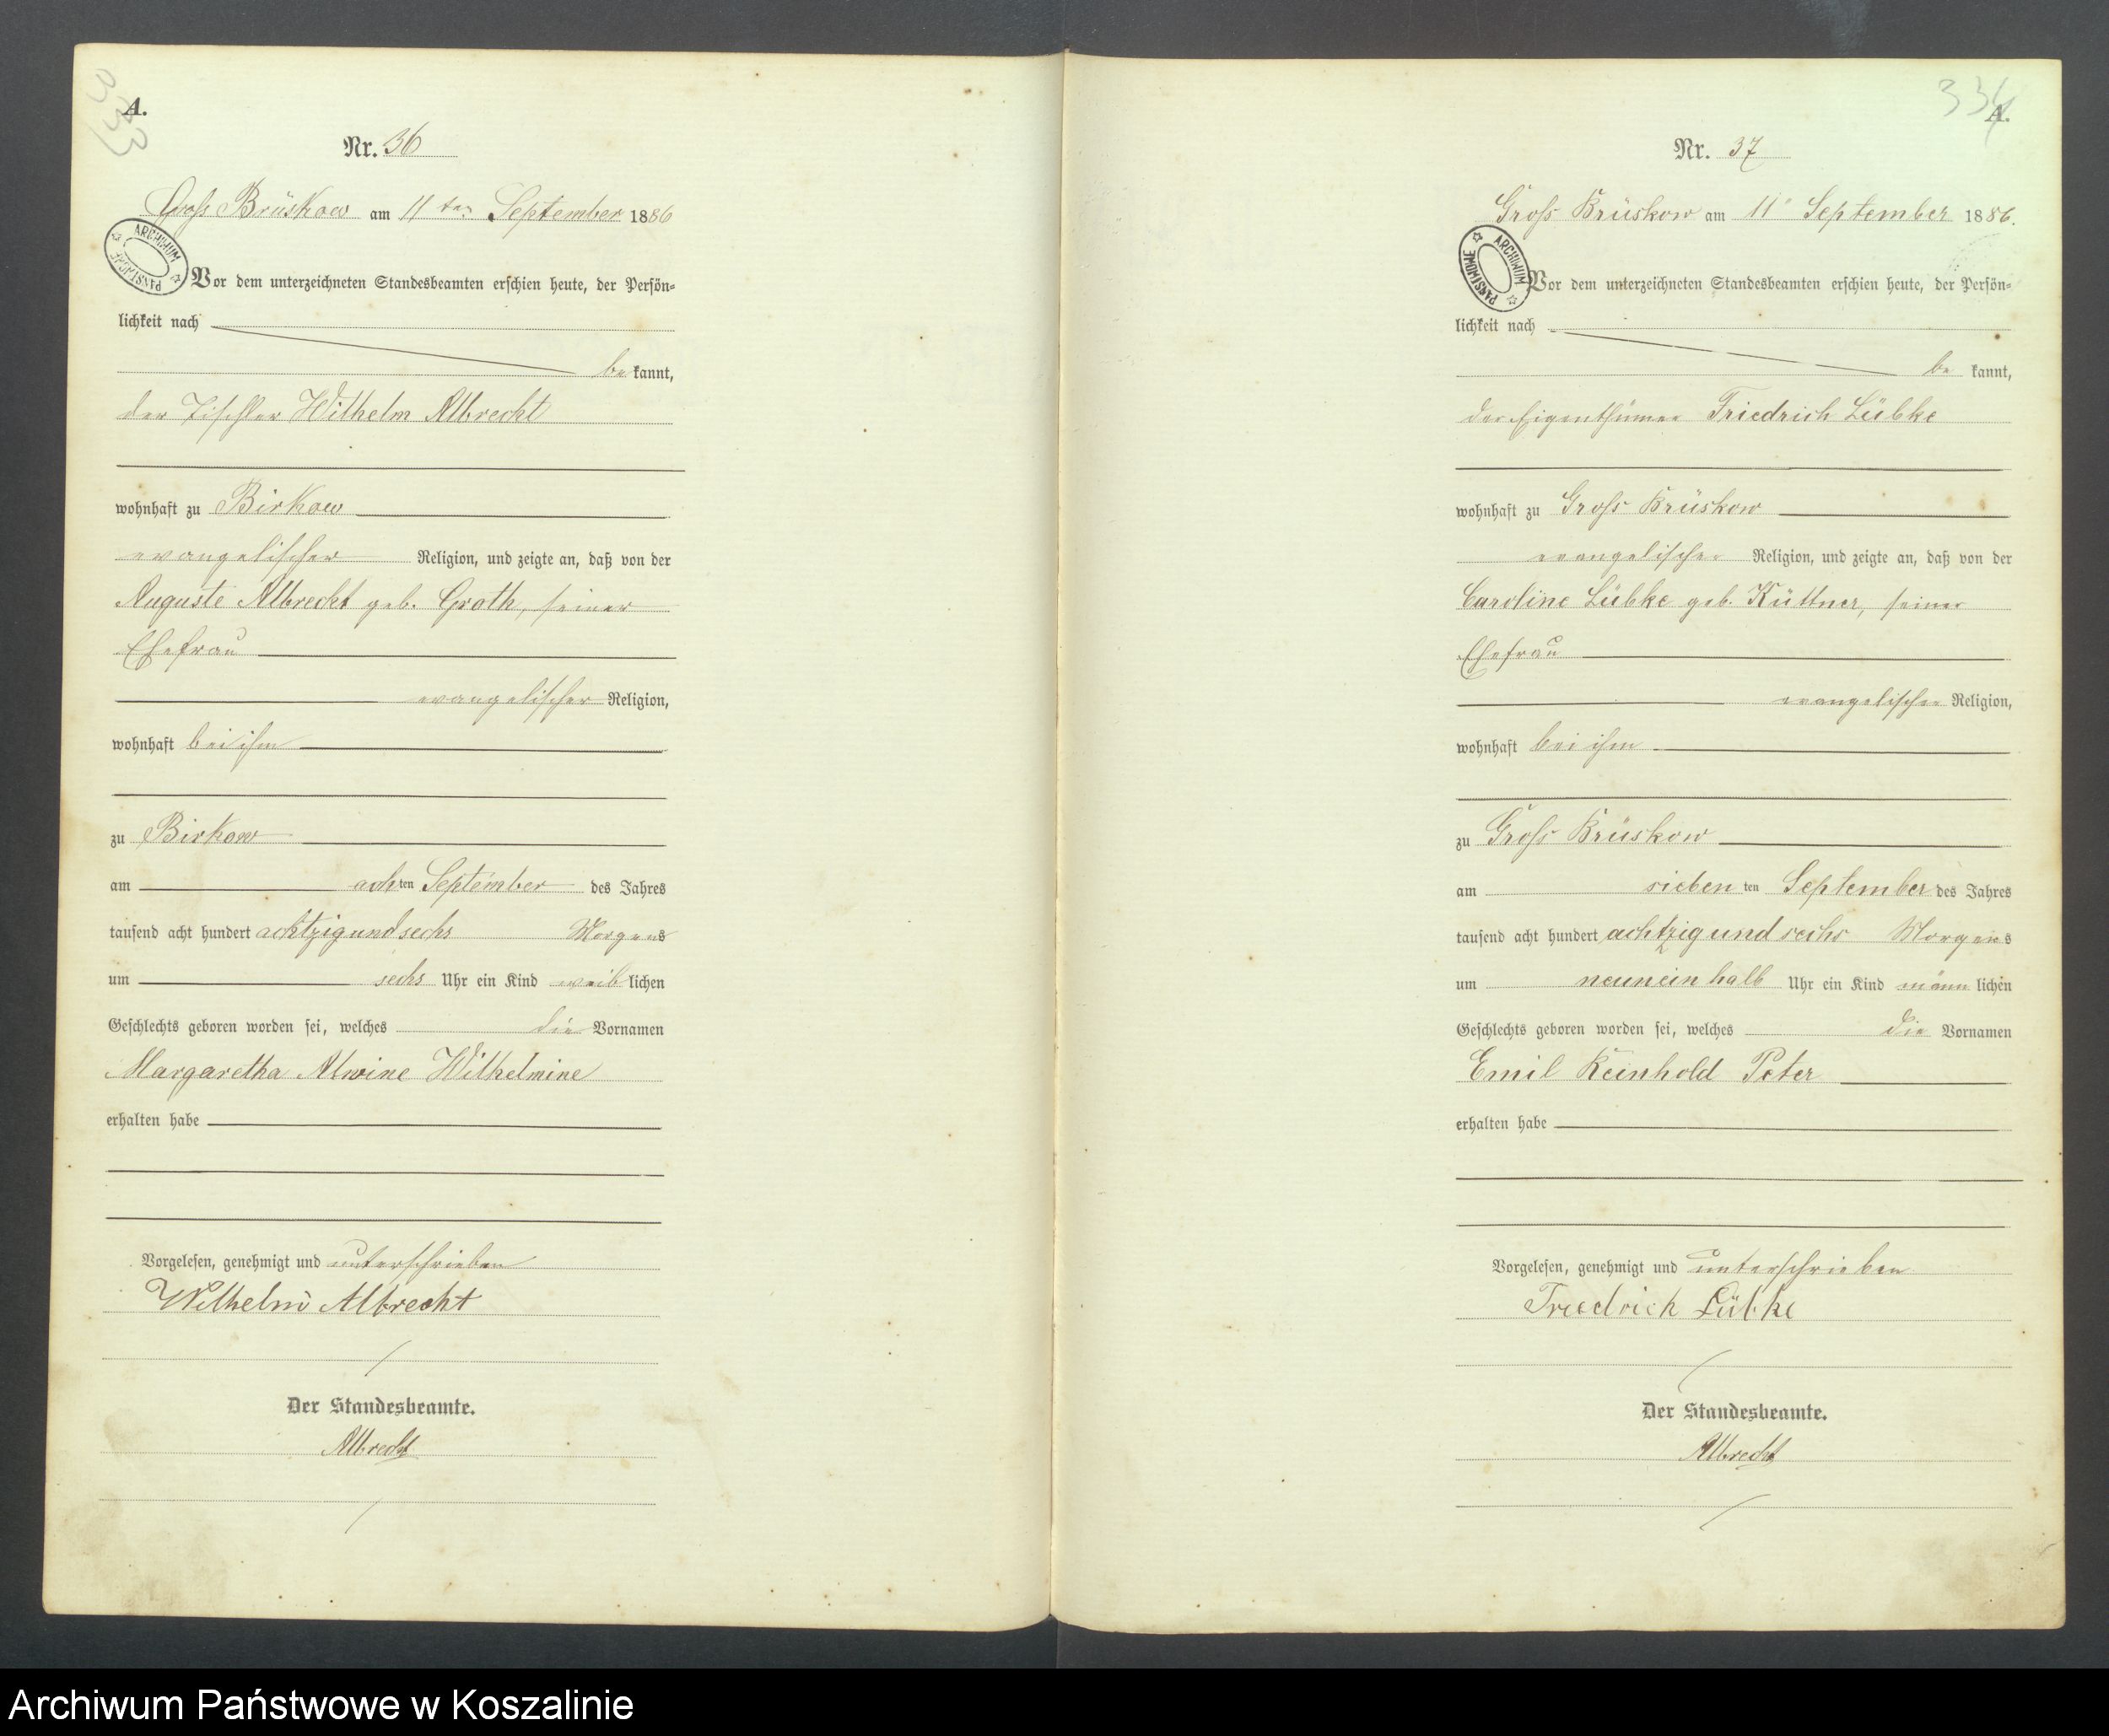 333
A.
Nr. 36
Groß Brüskow am 11ten September 1886
ARCHIWUM PAŃSTWOWE
Vor dem unterzeichneten Standesbeamten erschien heute, der Persön-
lichkeit nach
be kannt,
der Tischler Wilhelm Albrecht
wohnhaft zu Birkow
evangelischer Religion, und zeigte an, daß von der
Auguste Albrecht geb. Groth, seiner
Ehefrau
evangelischer Religion,
wohnhaft bei ihm
zu Birkow
am achten September des Jahres
tausend acht hundert achtzig und sechs Morgens
um sechs Uhr ein Kind weib lichen
Geschlechts geboren worden sei, welches die Vornamen
Margaretha Alwine Wilhelmine
erhalten habe
Vorgelesen, genehmigt und unterschrieben
Wilhelm Albrecht
Der Standesbeamte.
Albrecht
334
A.
Nr. 37
Groß Brüskow am 11" September 1886.
ARCHIWUM PAŃSTWOWE
Vor dem unterzeichneten Standesbeamten erschien heute, der Persön-
lichkeit nach
be kannt,
der Eigenthümer Friedrich Lübke
wohnhaft zu Groß Brüskow
evangelischer Religion, und zeigte an, daß von der
Caroline Lübke geb. Küttner, seiner
Ehefrau
evangelischer Religion,
wohnhaft bei ihm
zu Groß Brüskow
am sieben ten September des Jahres
tausend acht hundert achtzig und sechs Morgens
um neun ein halb Uhr ein Kind männ lichen
Geschlechts geboren worden sei, welches die Vornamen
Emil Reinhold Peter
erhalten habe
Vorgelesen, genehmigt und unterschrieben
Friedrich Lübke
Der Standesbeamte.
Albrecht
Archiwum Państwowe w Koszalinie